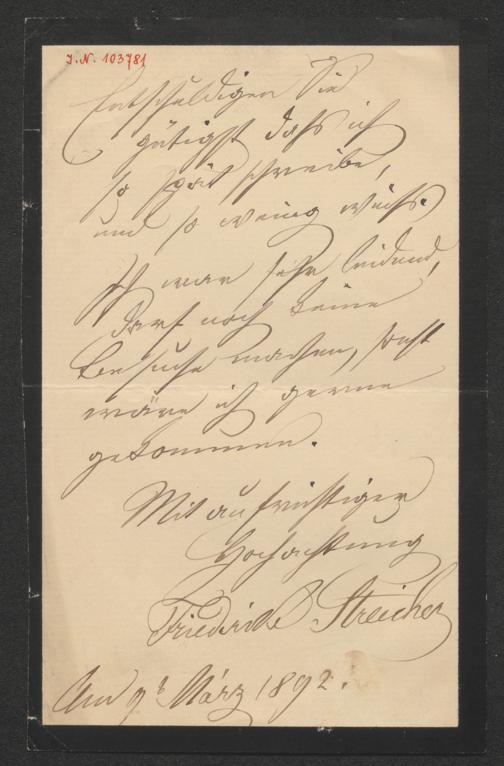 J. N. 103781
Entschuldigen Sie
gütigst dass ich
so spät schreibe,
und so wenig weiss.
Ich war sehr leidend,
darf noch keine
Besuche machen, sonst
wäre ich gerne
gekommen.
Mit aufrichtiger
Hochachtung
Friederike Streicher
Am 9t März 1892.